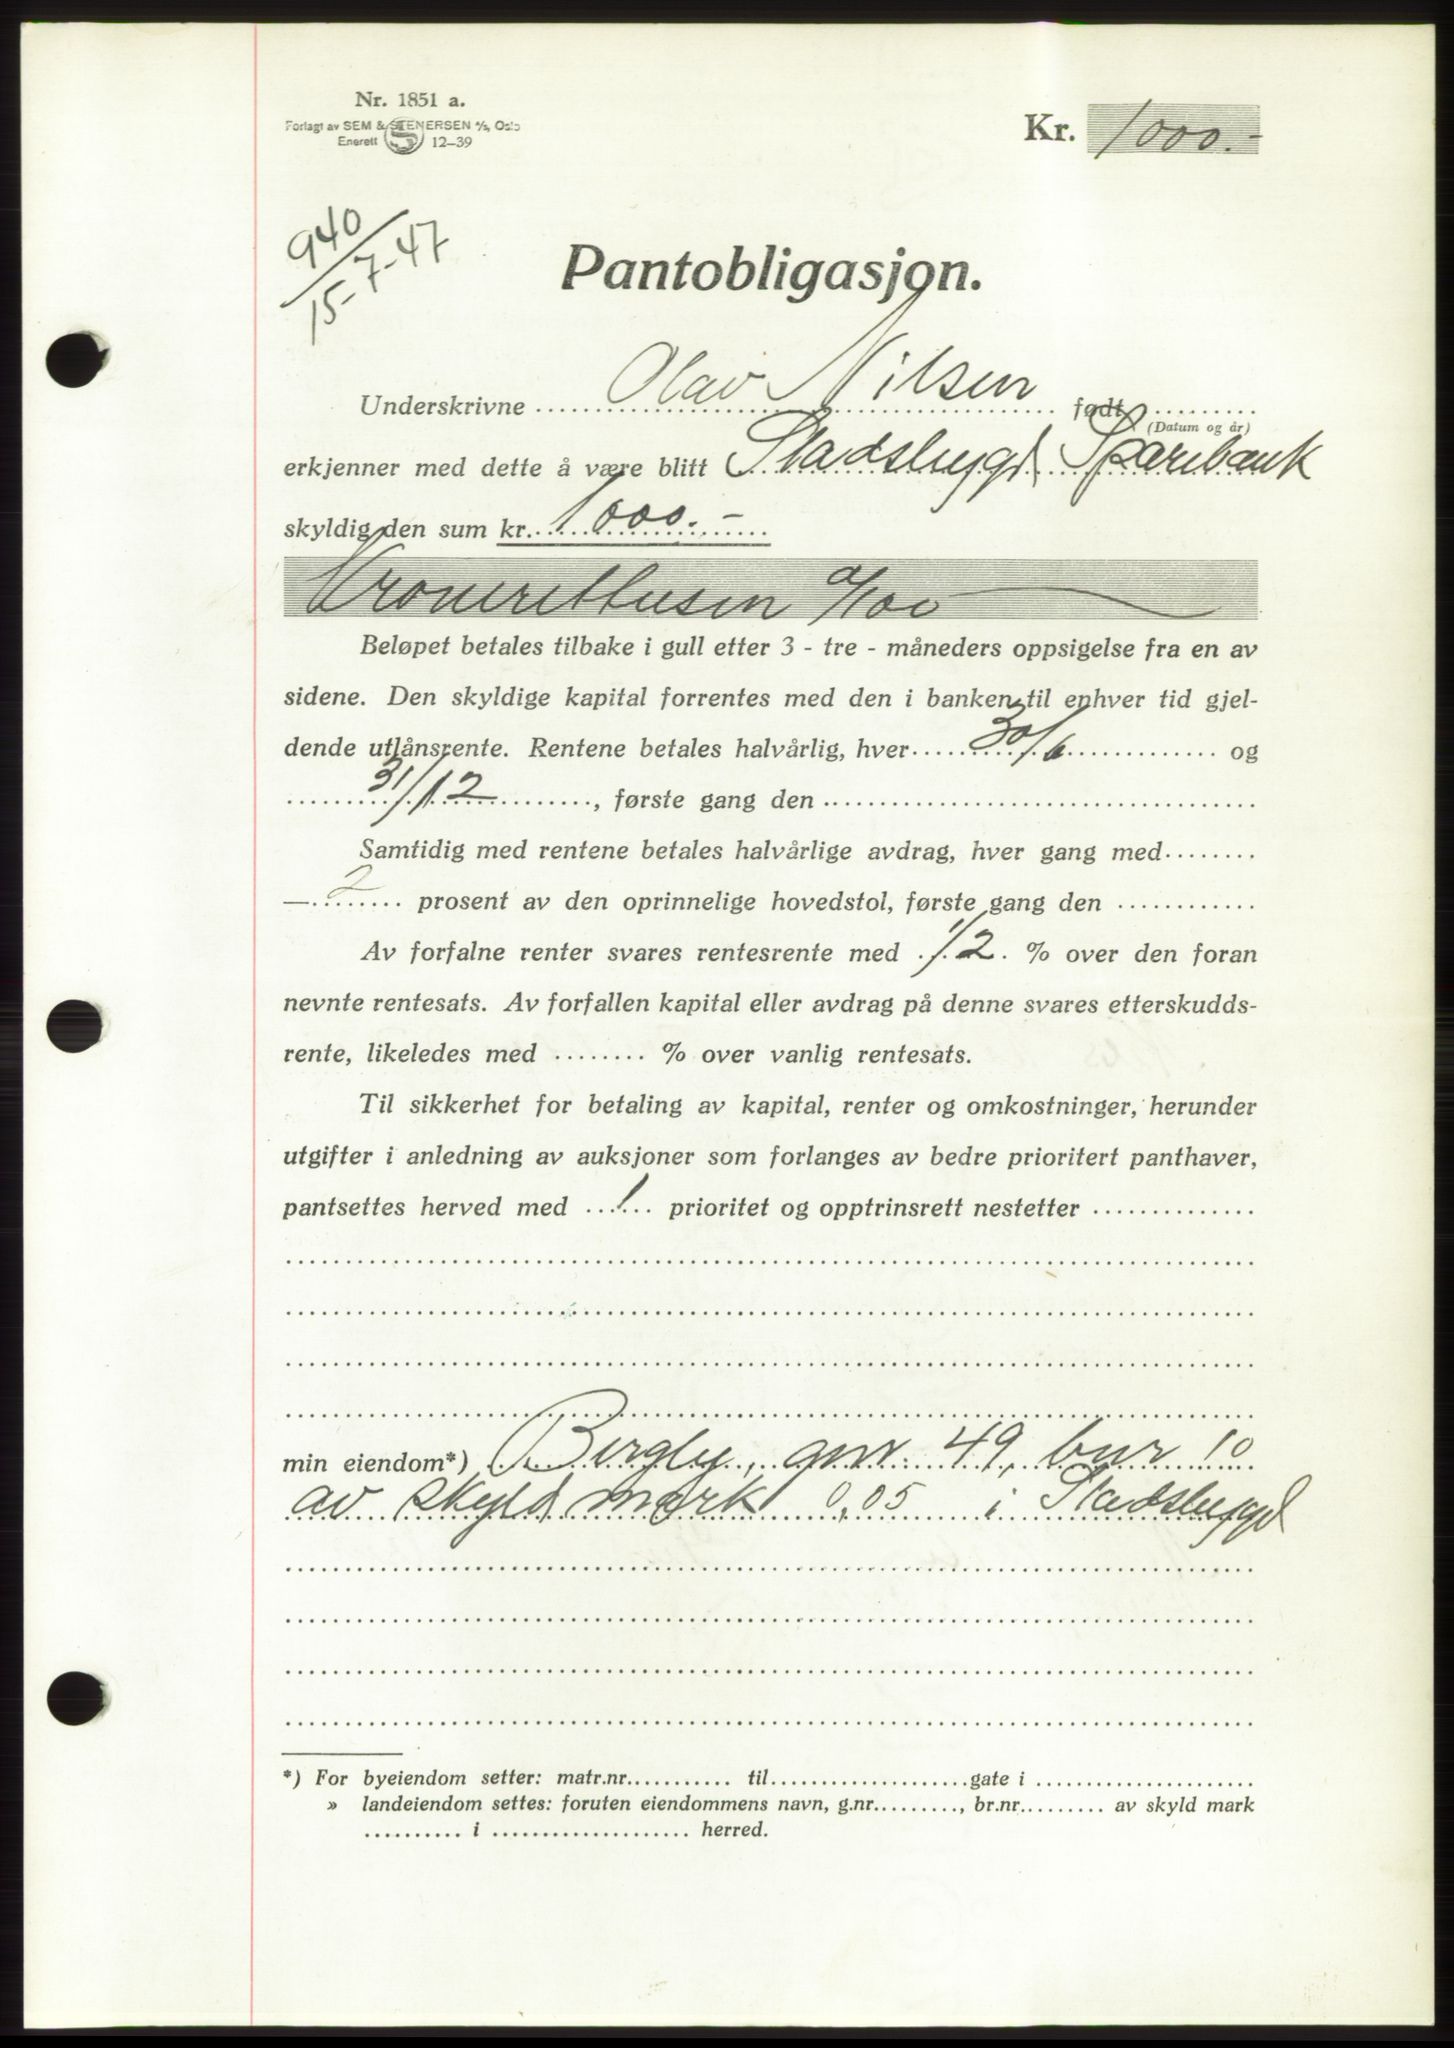 Nr. 1851 a.
Forlagt av SEM & STENERSEN A/S, Oslo
Enerett 12-39
Kr. 1000.-
940/15-7-47
Pantobligasjon.
Underskrivne Olav Nilsen født
(Datum og år)
erkjenner med dette å være blitt Stadsbygd Sparebank
skyldig den sum kr. 1000.-
Kronerettusen 0/100
Beløpet betales tilbake i gull etter 3 - tre - måneders oppsigelse fra en av
sidene. Den skyldige kapital forrentes med den i banken til enhver tid gjel-
dende utlånsrente. Rentene betales halvårlig, hver 30/6 og
31/12, første gang den
Samtidig med rentene betales halvårlige avdrag, hver gang med
— 2 prosent av den oprinnelige hovedstol, første gang den
Av forfalne renter svares rentesrente med 1/2 % over den foran
nevnte rentesats. Av forfallen kapital eller avdrag på denne svares etterskudds-
rente, likeledes med % over vanlig rentesats.
Til sikkerhet for betaling av kapital, renter og omkostninger, herunder
utgifter i anledning av auksjoner som forlanges av bedre prioritert panthaver,
pantsettes herved med 1 prioritet og opptrinsrett nestetter
min eiendom*) Bergly, gnr. 49, bnr 10
av skyld mark 0,05 i Stadsbygd
*) For byeiendom setter: matr.nr. til gate i
» landeiendom settes: foruten eiendommens navn, g.nr., br.nr. av skyld mark
i herred.